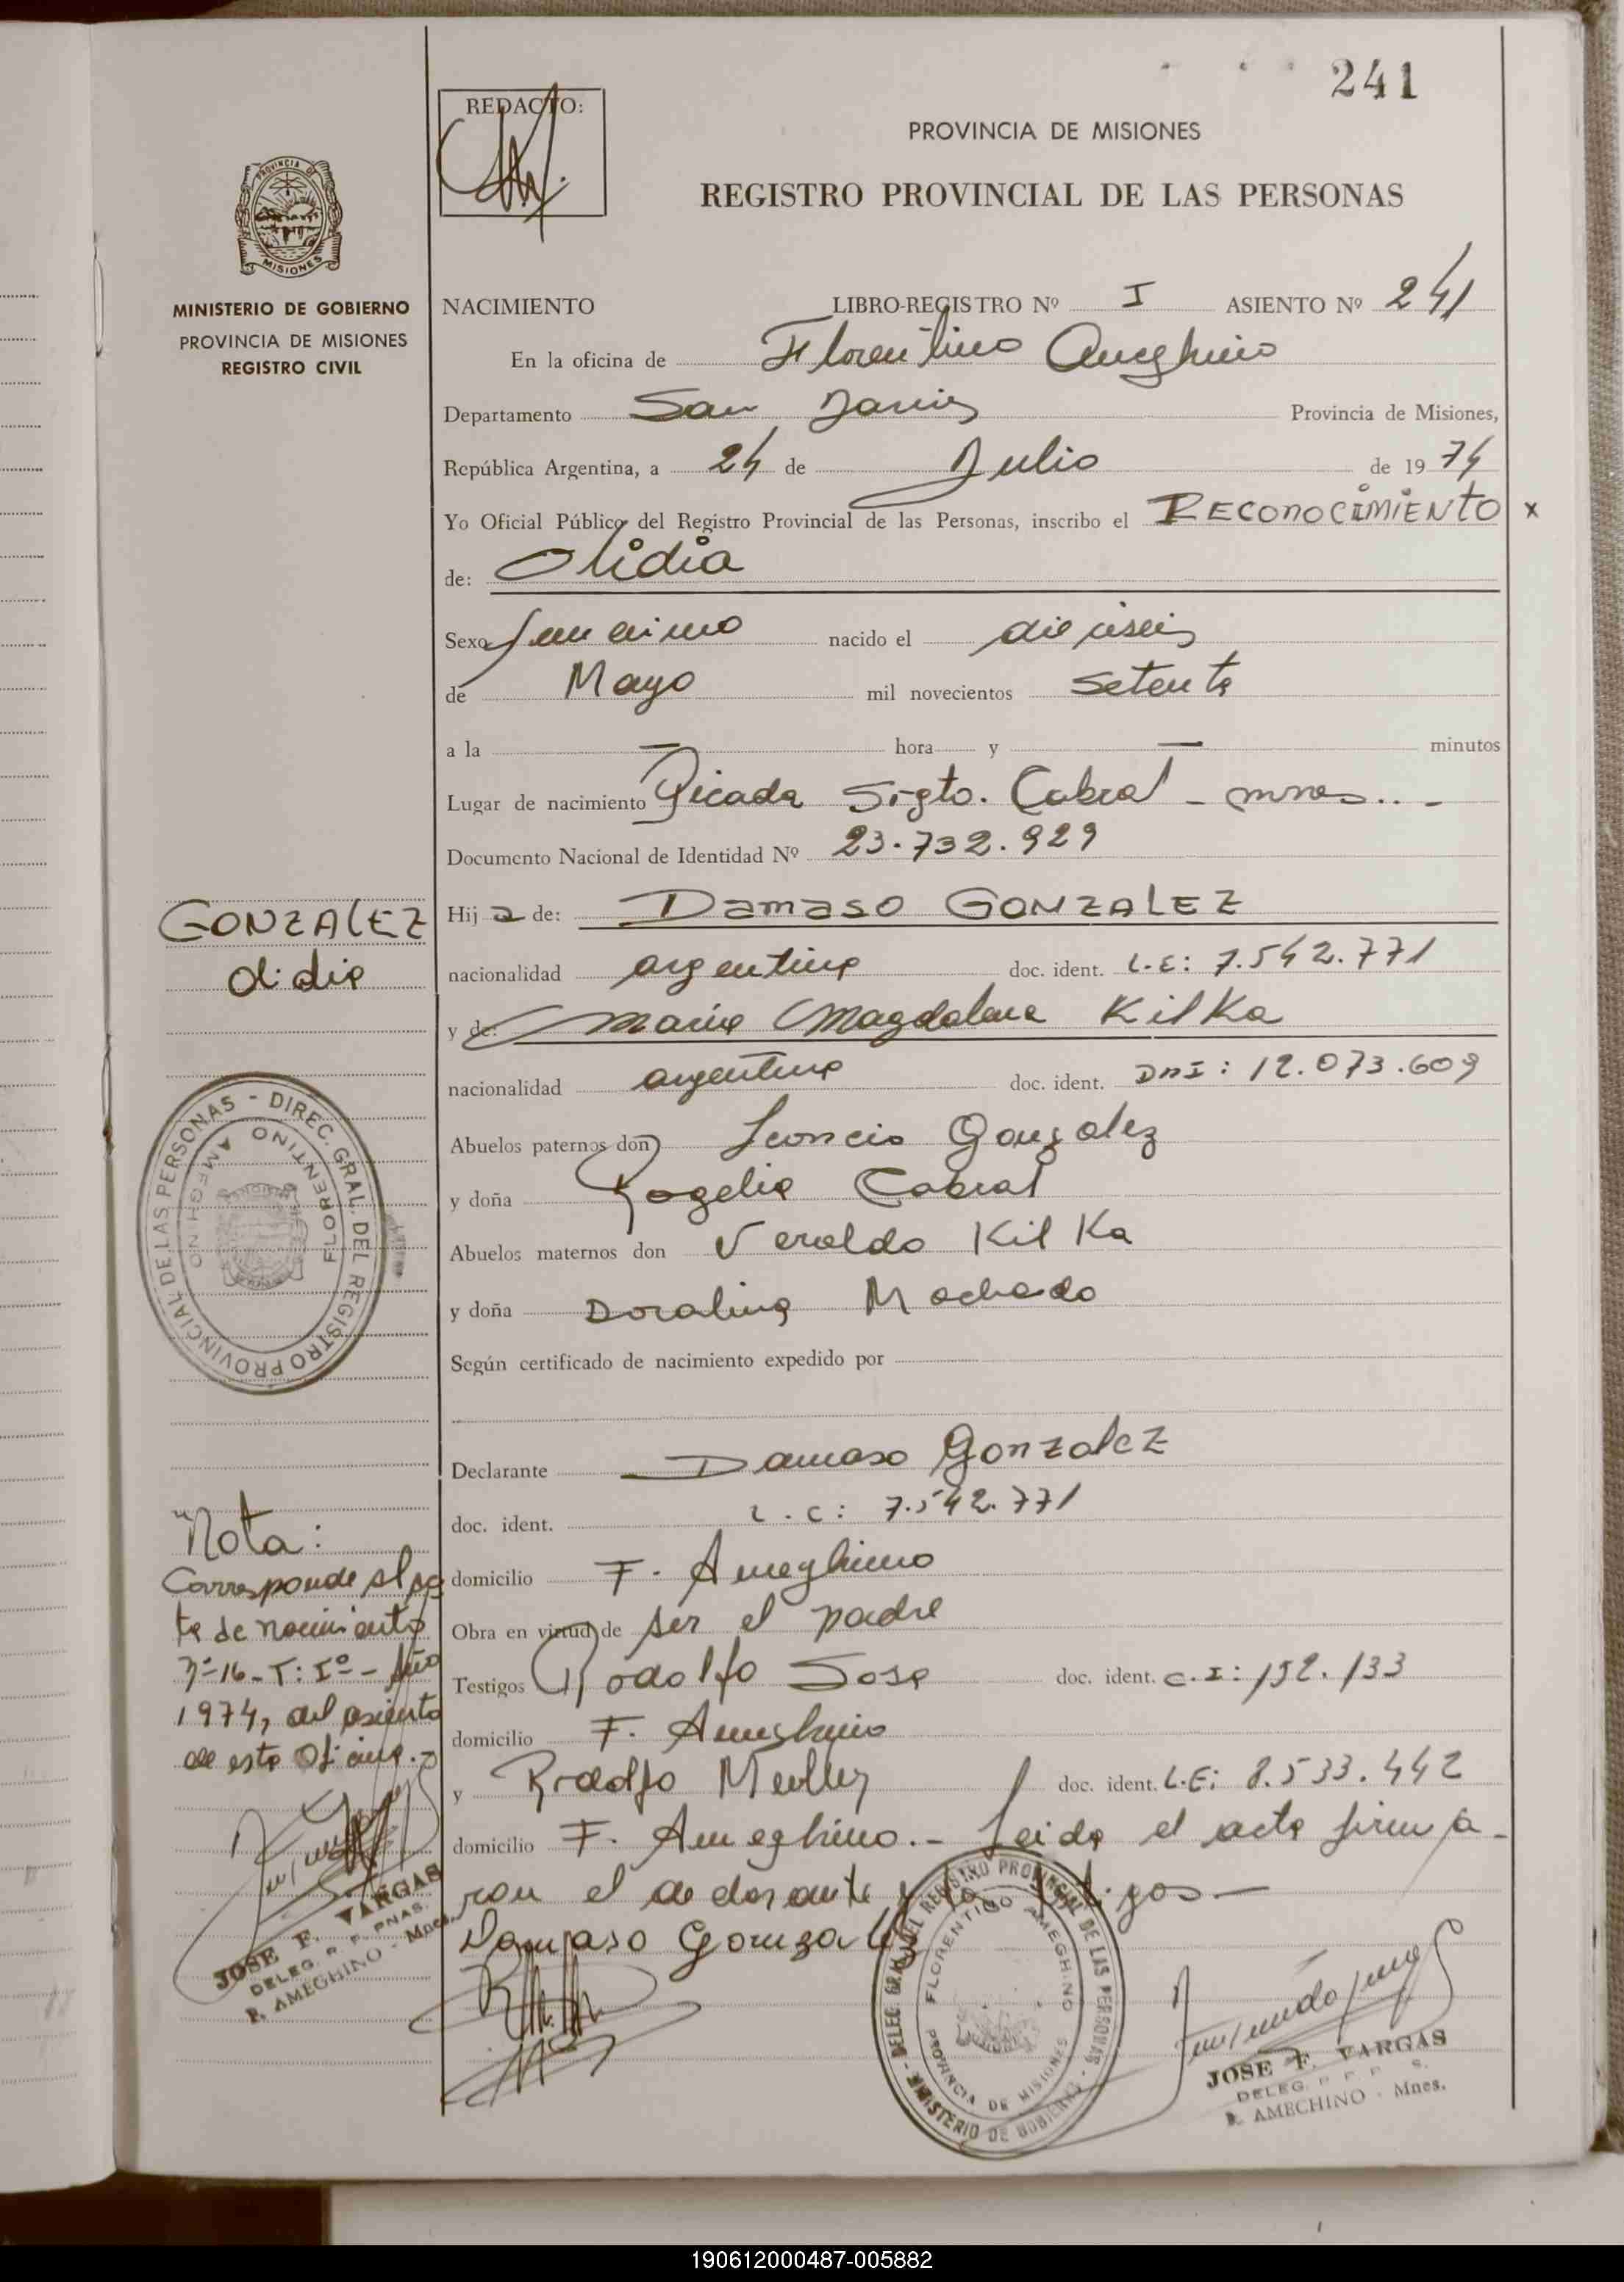 241
REDACTO:
PROVINCIA DE MISIONES
REGISTRO PROVINCIAL DE LAS PERSONAS
PROVINCIA DE
MISIONES
MINISTERIO DE GOBIERNO
PROVINCIA DE MISIONES
REGISTRO CIVIL
NACIMIENTO LIBRO-REGISTRO Nº I ASIENTO Nº 241
En la oficina de Florentino Ameghino
Departamento San Javier Provincia de Misiones,
República Argentina, a 24 de Julio de 1974
Yo Oficial Público del Registro Provincial de las Personas, inscribo el RECONOCIMIENTO x
de: Olidia
Sexo femenino nacido el dieciseis
de Mayo mil novecientos setenta
a la — hora y — minutos
Lugar de nacimiento Picada Sigto. Cabral - mnes.. -
Documento Nacional de Identidad Nº 23.732.929
Hij a de: Damaso GONZALEZ
GONZALEZ
Olidia
nacionalidad argentina doc. ident. L.E: 7.542.771
y de: Maria Magdalena Kilka
nacionalidad argentina doc. ident. DNI: 12.073.609
Abuelos paternos don Leoncio Gonzalez
y doña Rogelia Cabral
Abuelos maternos don Veraldo Kilka
y doña Doralina Machado
Según certificado de nacimiento expedido por
DIREC. GRAL. DEL REGISTRO PROVINCIAL DE LAS PERSONAS -
FLORENTINO AMEGHINO
Declarante Damaso Gonzalez
doc. ident. L.C: 7.542.771
domicilio F. Ameghino
Obra en virtud de ser el padre
Testigos Rodolfo Sosa doc. ident. C.I: 152.133
domicilio F. Ameghino
y Rodolfo Muller doc. ident. L.E: 8.533.442
domicilio F. Ameghino.- Leida el acta firma-
ron el declarante y los testigos—
Nota:
Corresponde al ac
ta de nacimiento
nº 16-T: Iº - Año
1974, del asiento
de esta Oficina.-
Damaso Gonzalez
JOSE F. VARGAS
DELEG. R. P. PNAS.
F. AMEGHINO - Mnes.
DELEG. GRAL. DEL REGISTRO PROVINCIAL DE LAS PERSONAS - MINISTERIO DE GOBIERNO -
FLORENTINO AMEGHINO
PROVINCIA DE MISIONES
JOSE F. VARGAS
DELEG. R. P. P. S.
F. AMEGHINO - Mnes.
190612000487-005882